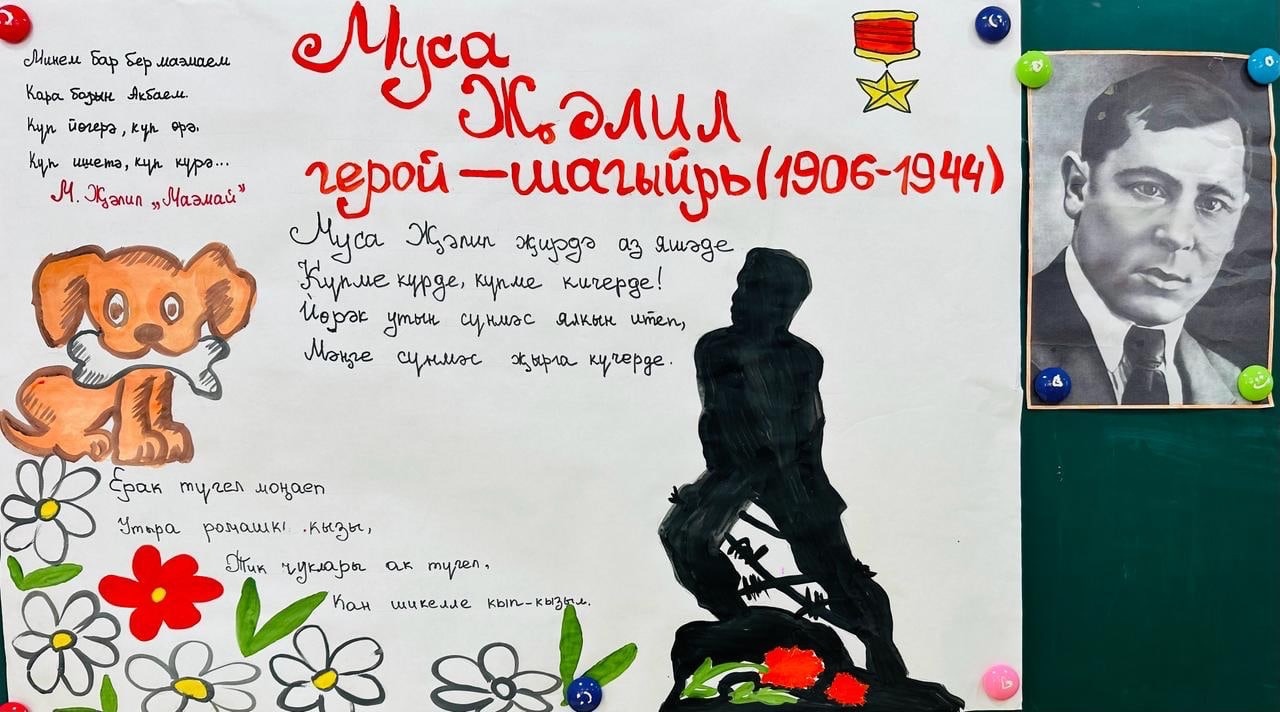 Минем бар бер маэмаем
Кара борын Акбаем.
Күп йөгерә, күп өрә,
Күп ишетә, күп күрә...
М. Җәлил „Маэмай”
Муса
Җәлил
герой – шагыйрь (1906-1944)
Муса Җәлил җирдә аз яшәде
Күпме күрде, күпме кичерде!
Йөрәк утын сүнмәс ялкын итеп,
Мәңге сүнмәс җырга күчерде.
Ерак түгел моңаеп
Утыра ромашка кызы,
Тик чуклары ак түгел,
Кан шикелле кып-кызыл.